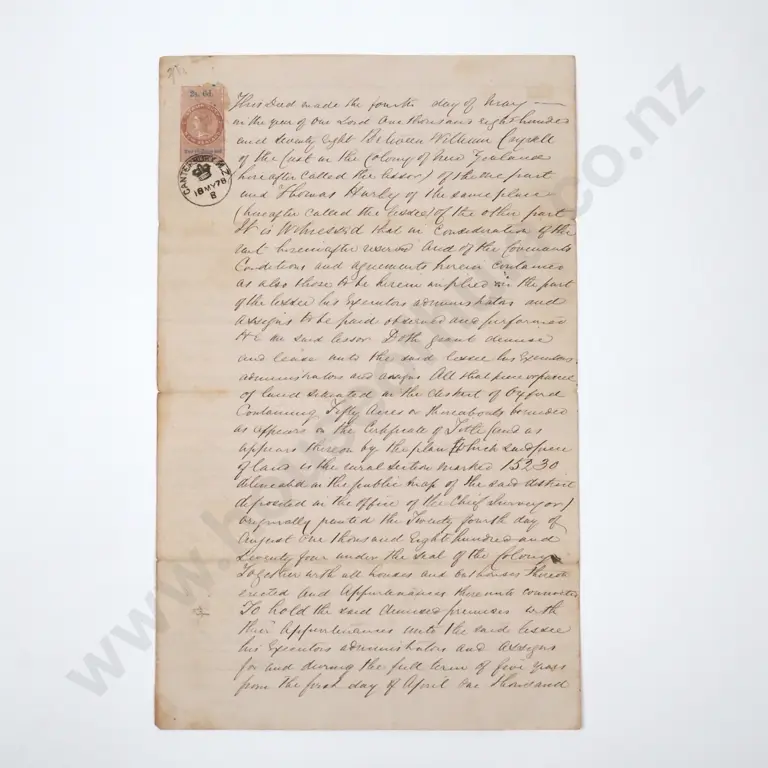 2s. 6d.
CANTERBURY N.Z
18 MY 78
8
This Deed made the fourth day of May
in the year of our Lord One thousand eight hundred
and seventy eight Between William
of the in the Colony of New Zealand
hereafter called the lessor) of the one part
and Thomas Hurly of the same place
(hereafter called the lessee) of the other part
It is Witnessed that in Consideration of the
rent hereinafter reserved and of the Covenants
Conditions and agreements herein contained
as also those to be herein implied in the part
of the lessee his Executors administrators and
assigns to be paid observed and performed
He the said lessor Doth grant demise
and lease unto the said lessee his Executors
administrators and assigns All that piece or parcel
of land situated in the district of Oxford
Containing Fifty Acres or thereabouts bounded
as appears on the Certificate of Title (and as
appears thereon by the plan which said piece
of land is the rural section marked 15230
delineated in the public map of the said district
deposited in the office of the Chief Surveyor)
originally granted the Twenty fourth day of
August One thousand Eight hundred and
Seventy four under the seal of the Colony
Together with all houses and outhouses thereon
erected and Appurtenances thereunto connected
To hold the said demised premises with
their Appurtenances unto the said lessee
his Executors administrators and assigns
for and during the full term of five years
from the first day of April One thousand